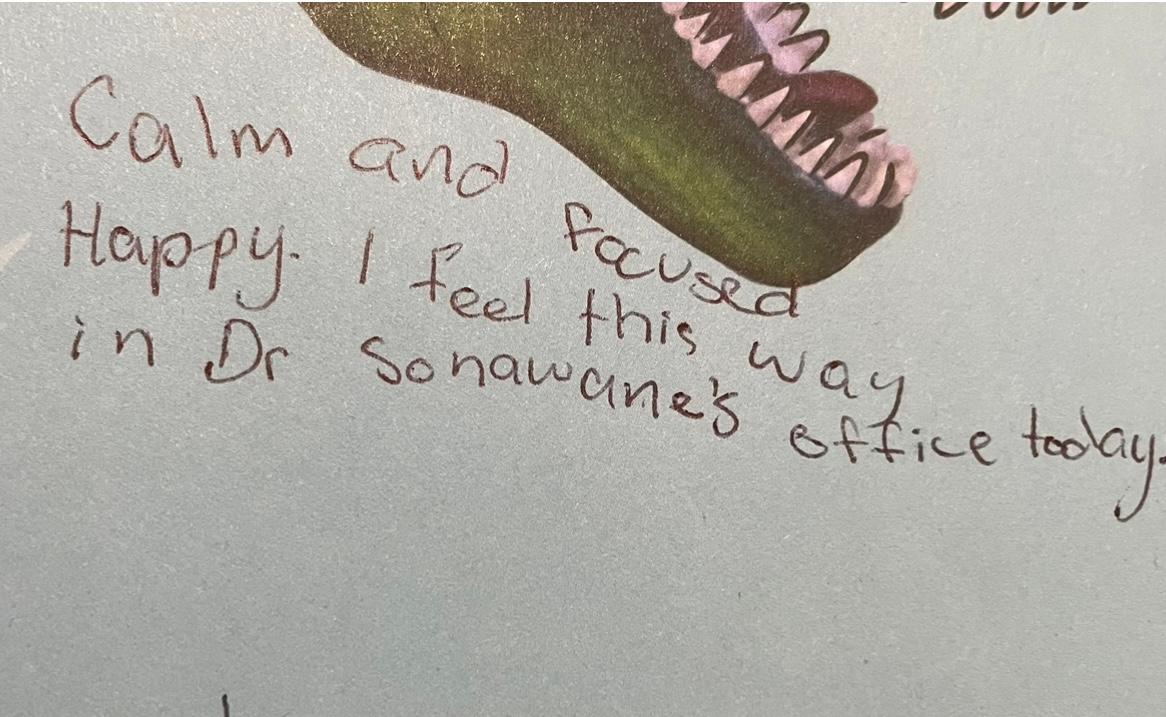 Calm and focused
Happy. I feel this way
in Dr Sonawane's office today.